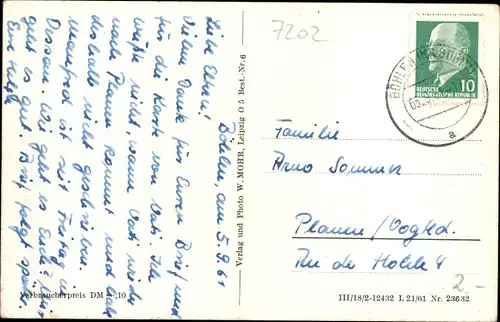 7202
Böhlen, am 5.9.61
Liebe Eltern!
Vielen Dank für Euren Brief und
für die Karte von Vati. Ich
weiß nicht, wann Vati wieder
nach Plauen kommt und habe
deshalb nicht geschrieben.
Manfred ist seit Freitag in
Dessau. Wie geht es Euch? Mir
geht es gut. Brief folgt später.
Eure
Verlag und Photo W. MOHR, Leipzig O 5 Best.-Nr. 6
DEUTSCHE
DEMOKRATISCHE REPUBLIK
10
BÖHLEN
a
Familie
Arno Sommer
Plauen/Vogtld.
4
2.-
Verbraucherpreis DM -,10
III/18/2-12432 L 21/61 Nr. 23632